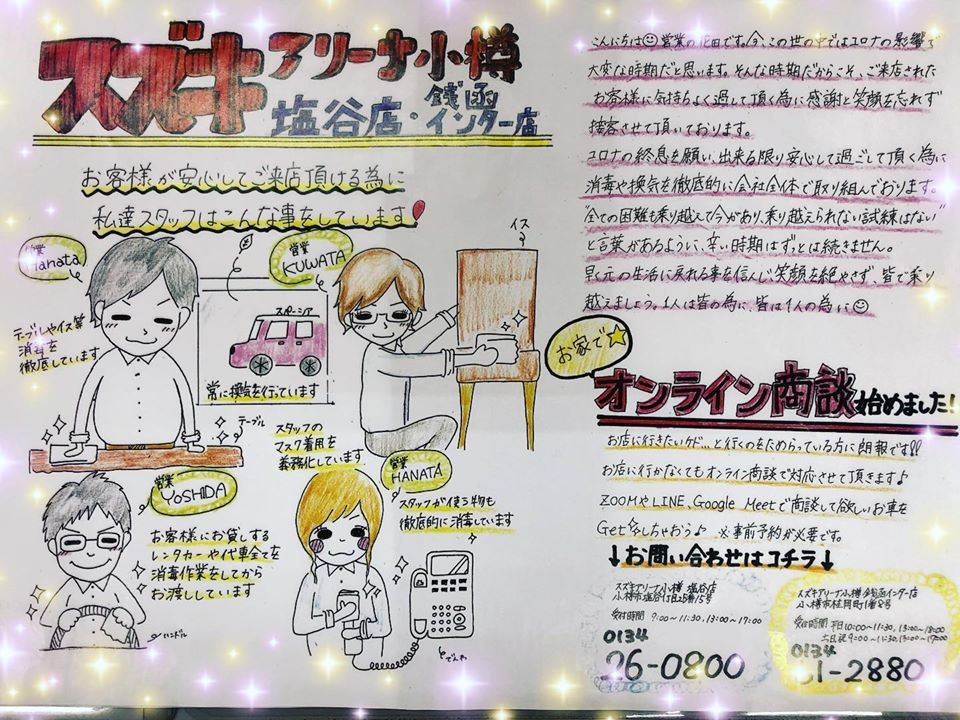 スズキアリーナ小樽
塩谷店・銭函インター店
お客様が安心してご来店頂ける為に
私達スタッフはこんな事をしています!
営業
Hanata
営業
KUWATA
イス
テーブルやイス等
消毒を
徹底しています
スペーシア
常に換気を行っています
テーブル
スタッフの
マスク着用を
義務化しています
営業
YOSHIDA
お客様にお貸しする
レンタカーや代車全てを
消毒作業をしてから
お渡ししています
ハンドル
営業
HANATA
スタッフが使う物も
徹底的に消毒しています
でんわ
こんにちは 営業の花田です。今、この世の中ではコロナの影響で
大変な時期だと思います。そんな時期だからこそ、ご来店された
お客様に気持ちよく過して頂く為に感謝と笑顔を忘れず
接客させて頂いております。
コロナの終息を願い、出来る限り安心して過ごして頂く為に
消毒や換気を徹底的に会社全体で取り組んでおります。
全ての困難も乗り越えて今があり、乗り越えられない試練はない"
と言葉があるように、辛い時期はずっとは続きません。
早く元の生活に戻れる事を信んじ、笑顔を絶やさず、皆で乗り
越えましょう。1人は皆の為に、皆は1人の為に
お家で
オンライン商談始めました!
お店に行きたいケド…と行くのをためらっている方に朗報です!!
お店に行かなくてもオンライン商談で対応させて頂きます♪
ZOOMやLINE、Google Meetで商談して欲しいお車を
Getしちゃおう♪ ※事前予約が必要です。
↓お問い合わせはコチラ↓
スズキアリーナ小樽 塩谷店
小樽市塩谷1丁目25番15号
受付時間 9:00〜11:30,13:00〜17:00
0134
26-0800
スズキアリーナ小樽 銭函インター店
小樽市桂岡町1番8号
受付時間 平日10:00〜11:30,13:00〜18:00
土日祝9:00〜11:30,13:00〜17:00
0134
61-2880